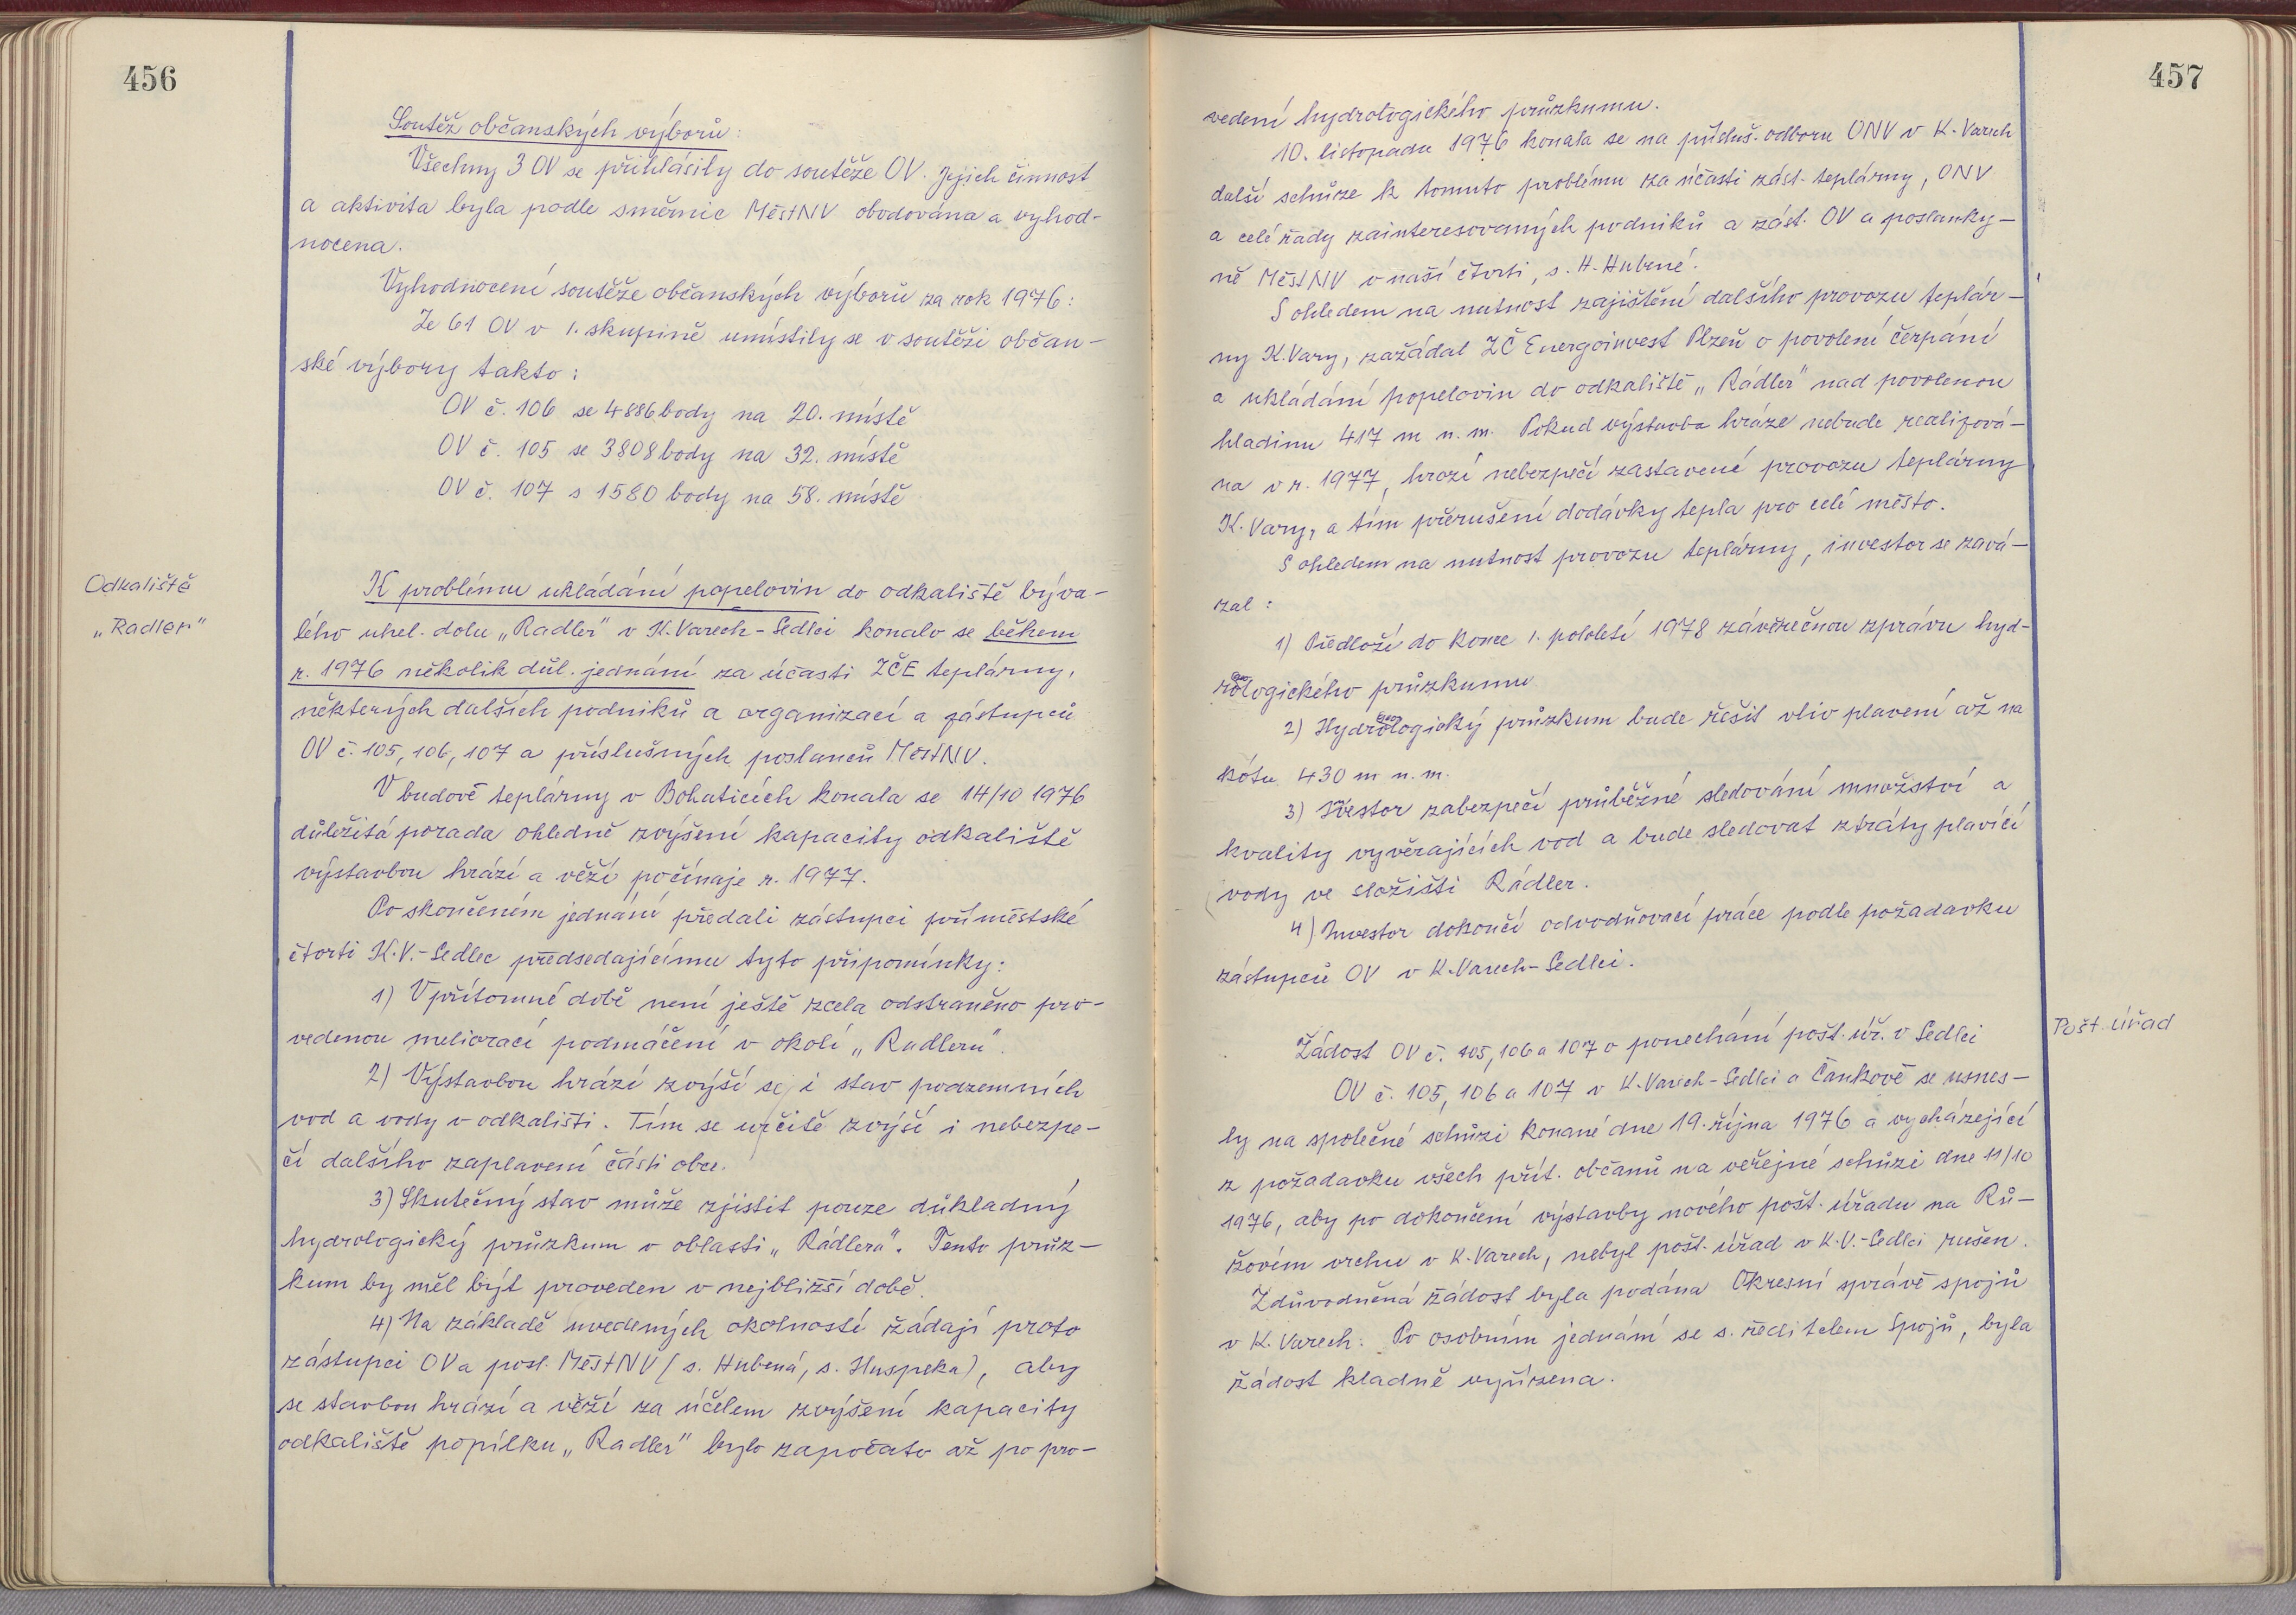 456
Soutěž občanských výborů:
Všechny 3 OV se přihlásily do soutěže OV. Jejich činnost
a aktivita byla podle směrnic MěstNV obodována a vyhod-
nocena.
Vyhodnocení soutěže občanských výborů za rok 1976:
Ze 61 OV v 1. skupině umístily se v soutěži občan-
ské výbory takto:
OV č. 106 se 4886 body na 20. místě
OV č. 105 se 3808 body na 32. místě
OV č. 107 s 1580 body na 58. místě
Odkaliště
„Radler"
K problému ukládání popelovin do odkaliště býva-
lého uhel. dolu „Radler" v K. Varech-Sedlci konalo se během
r. 1976 několik důl. jednání za účasti ZČE teplárny,
některých dalších podniků a organizací a zástupců
OV č. 105, 106, 107 a příslušných poslanců MěstNV.
V budově teplárny v Bohaticích konala se 14/10 1976
důležitá porada ohledně zvýšení kapacity odkaliště
výstavbou hrází a věží počínaje r. 1977.
Po skončeném jednání předali zástupci příměstské
čtvrti K.V.-Sedlec předsedajícímu tyto připomínky:
1) V přítomné době není ještě zcela odstraněno pro-
vedenou meliorací podmáčení v okolí „Radleru".
2) Výstavbou hrází zvýší se i stav podzemních
vod a vody v odkališti. Tím se určitě zvýší i nebezpe-
čí dalšího zaplavení části obce.
3) Skutečný stav může zjistit pouze důkladný
hydrologický průzkum v oblasti „Rádleru". Tento průz-
kum by měl být proveden v nejbližší době.
4) Na základě uvedených okolností žádají proto
zástupci OV a posl. MěstNV (s. Hubená, s. Huspeka), aby
se stavbou hrází a věží za účelem zvýšení kapacity
odkaliště popílku „Radler" bylo započato až po pro-
457
vedení hydrologického průzkumu.
10. listopadu 1976 konala se na přísluš. odboru ONV v K. Varech
další schůze k tomuto problému za účasti zást. teplárny, ONV
a celé řady zainteresovaných podniků a zást. OV a poslanky-
ně MěstNV v naší čtvrti, s. H. Hubené.
S ohledem na nutnost zajištění dalšího provozu teplár-
ny K. Vary, zažádal ZČ Energoinvest Plzeň o povolení čerpání
a ukládání popelovin do odkaliště „Rádler" nad povolenou
hladinu 417 m n. m. Pokud výstavba hráze nebude realizová-
na v r. 1977, hrozí nebezpečí zastavené provozu teplárny
K. Vary, a tím přerušení dodávky tepla pro celé město.
S ohledem na nutnost provozu teplárny, investor se zavá-
zal:
1) Předloží do konce 1. pololetí 1978 závěrečnou zprávu hyd-
rogeologického průzkumu
2) Hydrogeologický průzkum bude řešit vliv plavení až na
kótu 430 m n. m.
3) Investor zabezpečí průběžné sledování množství a
kvality vyvěrajících vod a bude sledovat ztráty plavící
vody ve složišti Rádler.
4) Investor dokončí odvodňovací práce podle požadavku
zástupců OV v K. Varech-Sedlci.
Pošt. úřad
Žádost OV č. 105, 106 a 107 o ponechání pošt. úř. v Sedlci
OV č. 105, 106 a 107 v K. Varech-Sedlci a Čankově se usnes-
ly na společné schůzi konané dne 19. října 1976 a vycházející
z požadavku všech přít. občanů na veřejné schůzi dne 11/10
1976, aby po dokončení výstavby nového pošt. úřadu na Rů-
žovém vrchu v K. Varech, nebyl pošt. úřad v K.V.-Sedlci rušen.
Zdůvodněná žádost byla podána Okresní správě spojů
v K. Varech. Po osobním jednání se s. ředitelem Spojů, byla
žádost kladně vyřízena.